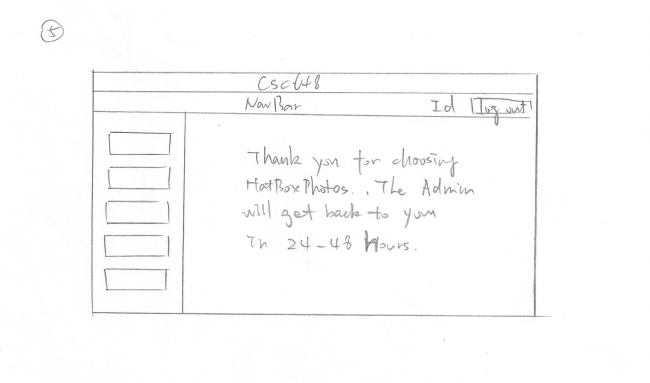 5
CSC648
NavBar
Id
log out
Thank you for choosing
HotBoxPhotos. The Admin
will get back to you
In 24-48 Hours.